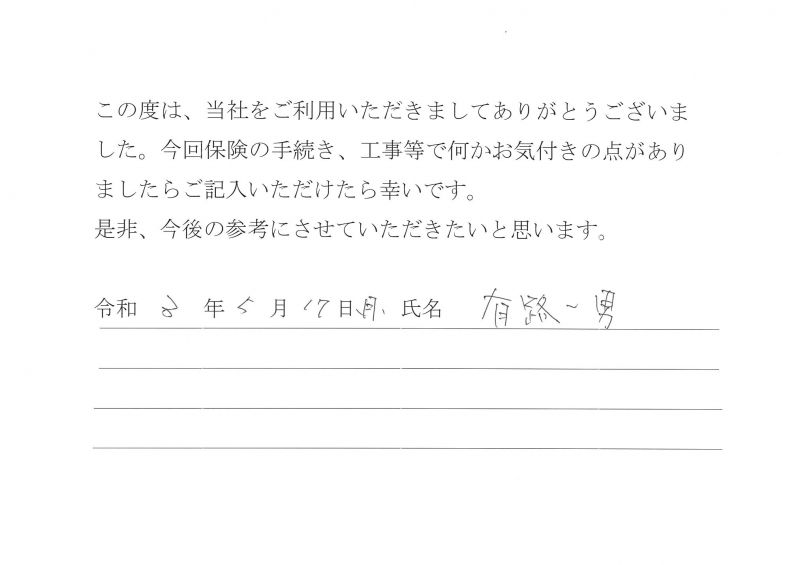 この度は、当社をご利用いただきましてありがとうございま
した。今回保険の手続き、工事等で何かお気付きの点があり
ましたらご記入いただけたら幸いです。
是非、今後の参考にさせていただきたいと思います。
令和 3 年 5 月 17日(月) 氏名 有路一男